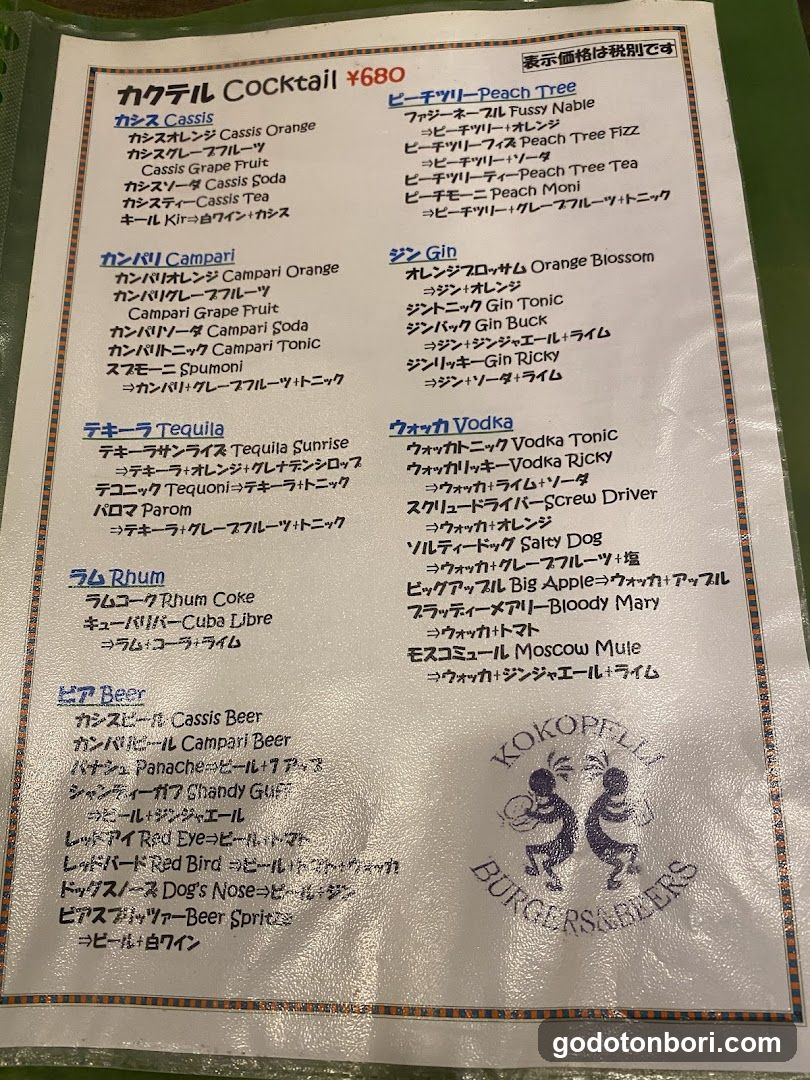 表示価格は税別です
カクテル Cocktail ¥680
カシス Cassis
カシスオレンジ Cassis Orange
カシスグレープフルーツ
Cassis Grape Fruit
カシスソーダ Cassis Soda
カシスティーCassis Tea
キール Kir⇒白ワイン+カシス
カンパリ Campari
カンパリオレンジ Campari Orange
カンパリグレープフルーツ
Campari Grape Fruit
カンパリソーダ Campari Soda
カンパリトニック Campari Tonic
スプモーニ Spumoni
⇒カンパリ+グレープフルーツ+トニック
テキーラ Tequila
テキーラサンライズ Tequila Sunrise
⇒テキーラ+オレンジ+グレナデンシロップ
テコニック Tequoni⇒テキーラ+トニック
パロマ Parom
⇒テキーラ+グレープフルーツ+トニック
ラム Rhum
ラムコーク Rhum Coke
キューバリバーCuba Libre
⇒ラム+コーラ+ライム
ビア Beer
カシスビール Cassis Beer
カンパリビール Campari Beer
パナシュ Panache⇒ビール+7アップ
シャンディーガフ Shandy Guff
⇒ビール+ジンジャエール
レッドアイ Red Eye⇒ビール+トマト
レッドバード Red Bird ⇒ビール+トマト+ウォッカ
ドッグスノーズ Dog's Nose⇒ビール+ジン
ビアスプリッツァーBeer Spritze
⇒ビール+白ワイン
ピーチツリーPeach Tree
ファジーネーブル Fussy Nable
⇒ピーチツリー+オレンジ
ピーチツリーフィズ Peach Tree Fizz
⇒ピーチツリー+ソーダ
ピーチツリーティーPeach Tree Tea
ピーチモーニ Peach Moni
⇒ピーチツリー+グレープフルーツ+トニック
ジン Gin
オレンジブロッサム Orange Blossom
⇒ジン+オレンジ
ジントニック Gin Tonic
ジンバック Gin Buck
⇒ジン+ジンジャエール+ライム
ジンリッキーGin Ricky
⇒ジン+ソーダ+ライム
ウォッカ Vodka
ウォッカトニック Vodka Tonic
ウォッカリッキーVodka Ricky
⇒ウォッカ+ライム+ソーダ
スクリュードライバーScrew Driver
⇒ウォッカ+オレンジ
ソルティードッグ Salty Dog
⇒ウォッカ+グレープフルーツ+塩
ビッグアップル Big Apple⇒ウォッカ+アップル
ブラッディーメアリーBloody Mary
⇒ウォッカ+トマト
モスコミュール Moscow Mule
⇒ウォッカ+ジンジャエール+ライム
KOKOPELLI
BURGERS&BEERS
godotonbori.com